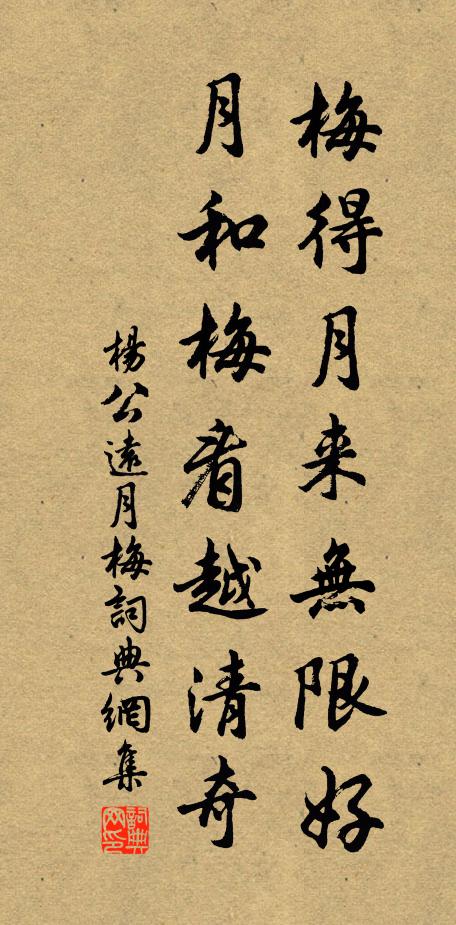 梅得月来無限好
月和梅看越清奇
楊公遠月梅詞典網集
詞典
网印